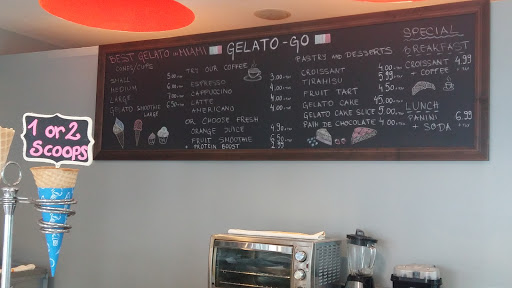 BEST GELATO IN MIAMI GELATO-GO
CONES/CUPS
SMALL 5.00
MEDIUM 6.00
LARGE 7.00
GELATO SMOOTHIE 6.50
LARGE
TRY OUR COFFEE
ESPRESSO
CAPPUCCINO
LATTE
AMERICANO
OR CHOOSE FRESH
ORANGE JUICE 4.90
FRUIT SMOOTHIE 6.50
+ PROTEIN BOOST 2.99
PASTRY AND DESSERTS
CROISSANT 4.00
TIRAMISU 5.99
FRUIT TART 4.50
GELATO CAKE 45.00
GELATO CAKE SLICE 5.00
PAIN DE CHOCOLATE 4.00
SPECIAL
BREAKFAST
CROISSANT 4.99
+ COFFEE
LUNCH
PANINI 6.99
+ SODA
1 or 2
SCOOPS